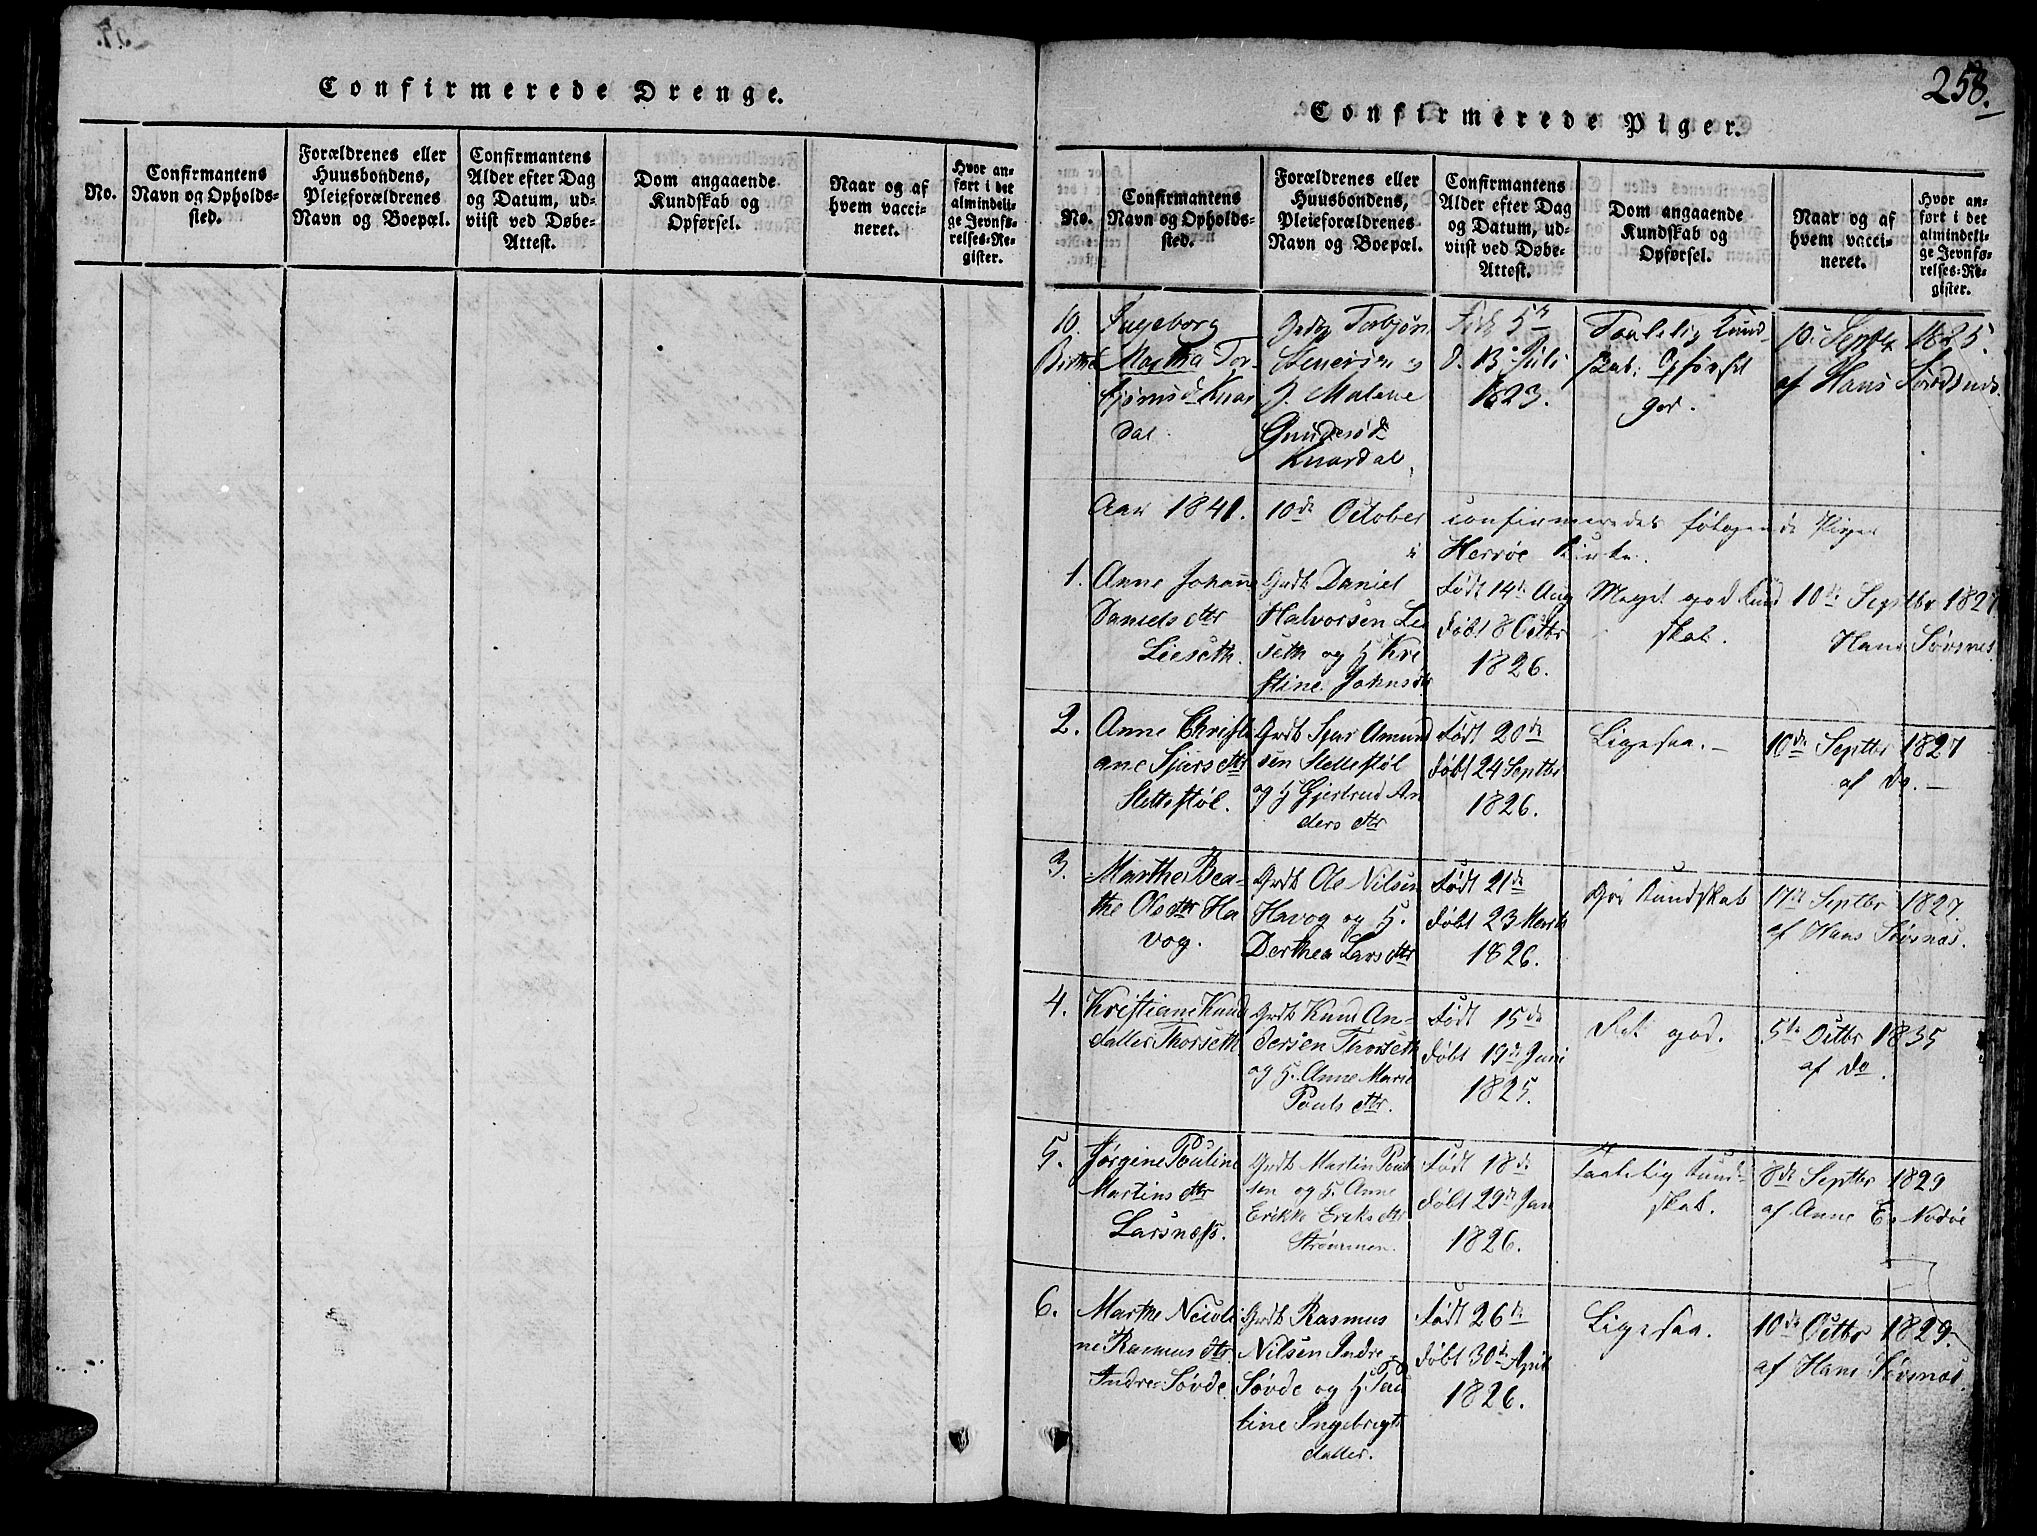 Confirmerede Drenge.
No.
Confirmantens
Navn og Opholds-
sted.
Forældrenes eller
Huusbondens,
Pleieforældrenes
Navn og Boepæl.
Confirmantens
Alder efter Dag
og Datum, ud-
viist ved Døbe-
Attest.
Dom angaaende
Kundskab og
Opførsel.
Naar og af
hvem vacci-
neret.
Hvor an-
ført i det
almindeli-
ge Jevnfø-
relses-Re-
gister.
258.
Confirmerede Piger.
No.
Confirmantens
Navn og Opholds-
sted.
Forældrenes eller
Huusbondens,
Pleieforældrenes
Navn og Boepæl.
Confirmantens
Alder efter Dag
og Datum, ud-
viist ved Døbe-
Attest.
Dom angaaende
Kundskab og
Opførsel.
Naar og af
hvem vacci-
neret.
Hvor an-
ført i det
almindeli-
ge Jevnfø-
relses-Re-
gister.
10.
Ingeborg
Martha Tor-
Knar
dal.
Torbjørn
H. Malene
Knardal.
5te
D. 13 Juli
1823.
Taalelig Kund-
skab; Opførsel
god.
10. Septbr 1825.
af Hans
Aar 1841. 10de October confirmeredes følgende Piger
i Herrøe Kirke.
1.
Anne Johanne
Daniels dtr
Lieseth.
Grdb Daniel
Halvorsen Lie
seth og H Kri
stine Johnsdtr
Født 14de Aug
døbt 8 Octbr
1826.
Meget god Kund
skab.
10de Septbr 1827
Hans Sørsnes.
2.
Anne Christi
ane Sjurs dtr
Stettestøl.
Grdb Sjur Amund
sen Stettestøl
og H Gjertrud An
ders dtr
Født 20de
døbt 24 Septbr
1826.
Ligesaa. -
10de Septbr 1827
af do. -
3.
Marthe Bea-
the Ols dtr Ha
vog.
Grdb Ole Nilsen
Havog og H.
Derthea Lars dtr
Født 21de
døbt 23 Marts
1826.
God Kundskab
17de Septbr 1827.
af Hans Sørsnæs.
4.
Kristiane Knud
datter Thorseth
Grdb Knud An-
dersen Thorseth
og H. Anne Marie
Pouls dtr.
Født 15de
døbt 19de Juni
1825.
Ret god.
5te Octbr 1835
af do.
5.
Jørgine Pouline
Martins dtr
Larsnæs.
Grdb Martin Poul
sen og H. Anne
Erikke Eriks dtr
Strømmen.
Født 18de
døbt 29de Jan
1826.
Taalelig Kund-
skab.
8de Septbr 1829
af Anne E. Nodøe
6.
Marthe Nicoli
ne Rasmus dtr
Indre Søvde.
Grdb Rasmus
Nilsen Indre
Søvde og H Pau
line Ingebrigt
datter.
Født 26de
døbt 30de April
1826.
Ligesaa.
10de Octbr 1829.
af Hans Sørsnæs.